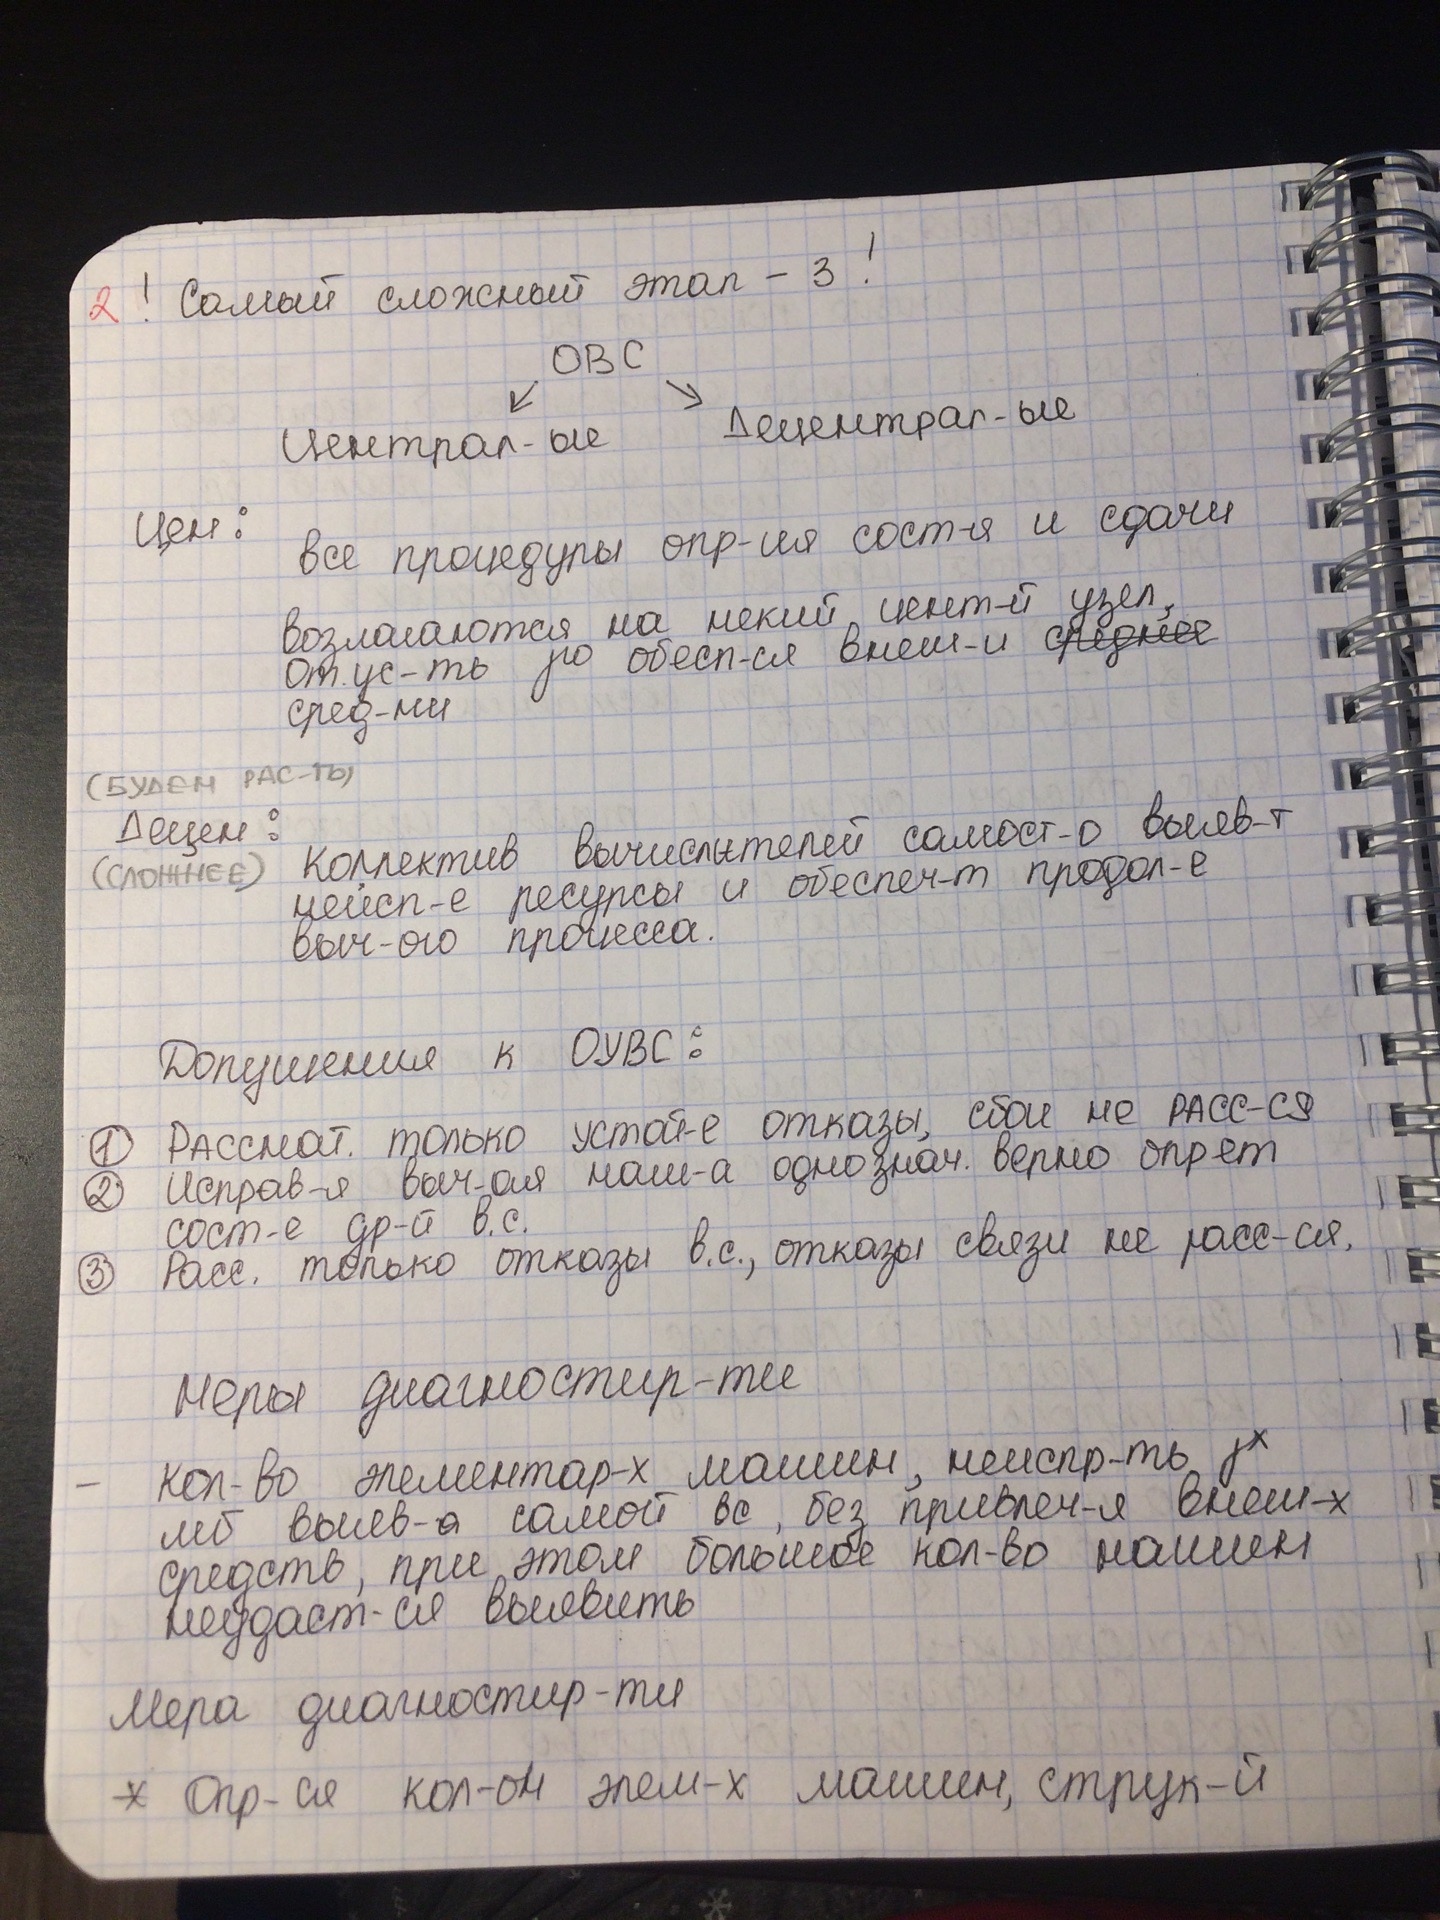 2 ! Самый сложный этап - 3 !
ОВС
Централ-ые Децентрал-ые
Цен:
все процедуры опр-ия сост-я и сдачи
возлагаются на некий цент-й узел,
от.ус-ть обесп-ся внеш-и среднее
сред-ми
(БУДЕМ РАС-ТЬ)
Децен:
(СЛОЖНЕЕ) Коллектив вычислителей самост-о выяв-т
неисп-е ресурсы и обеспеч-т продол-е
выч-ого процесса.
Допущения к ОУВС:
① Рассмат. только устой-е отказы, сбои не расс-ся
② Исправ-я выч-ая маш-а однознач. верно опр-ет
сост-е др-й в.с.
③ Расс. только отказы в.с., отказы связи не расс-ся.
Меры диагностир-ти
- Кол-во элементар-х машин, неиспр-ть
мб выяв-а самой вс, без привлеч-я внеш-х
средств, при этом большое кол-во машин
неудаст-ся выявить
Мера диагностир-ти
* Опр-ся кол-ом элем-х машин, струк-й